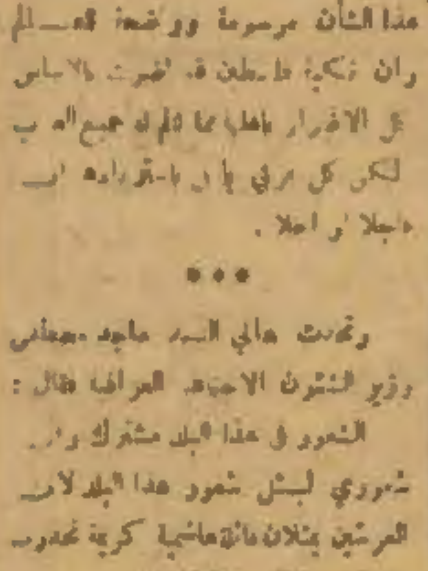 هذا الشأن مرسومة وواضحة
وان نكبة فلسطين قد اضرت بالاساس
كل الاضرار بأهلها مما تألم له جميع العرب
لكن كل عربي يأمل باستردادها ان
عاجلا او آجلا .
● ● ●
وتحدث معالي السيد ماجد مصطفى
وزير الشئون الاجتماعية العراقية فقال :
الشعور في هذا البلد مشترك وان
شعوري ليمثل شعور هذا البلد لان
العرشين يمثلان عائلة هاشمية كريمة تحدرت